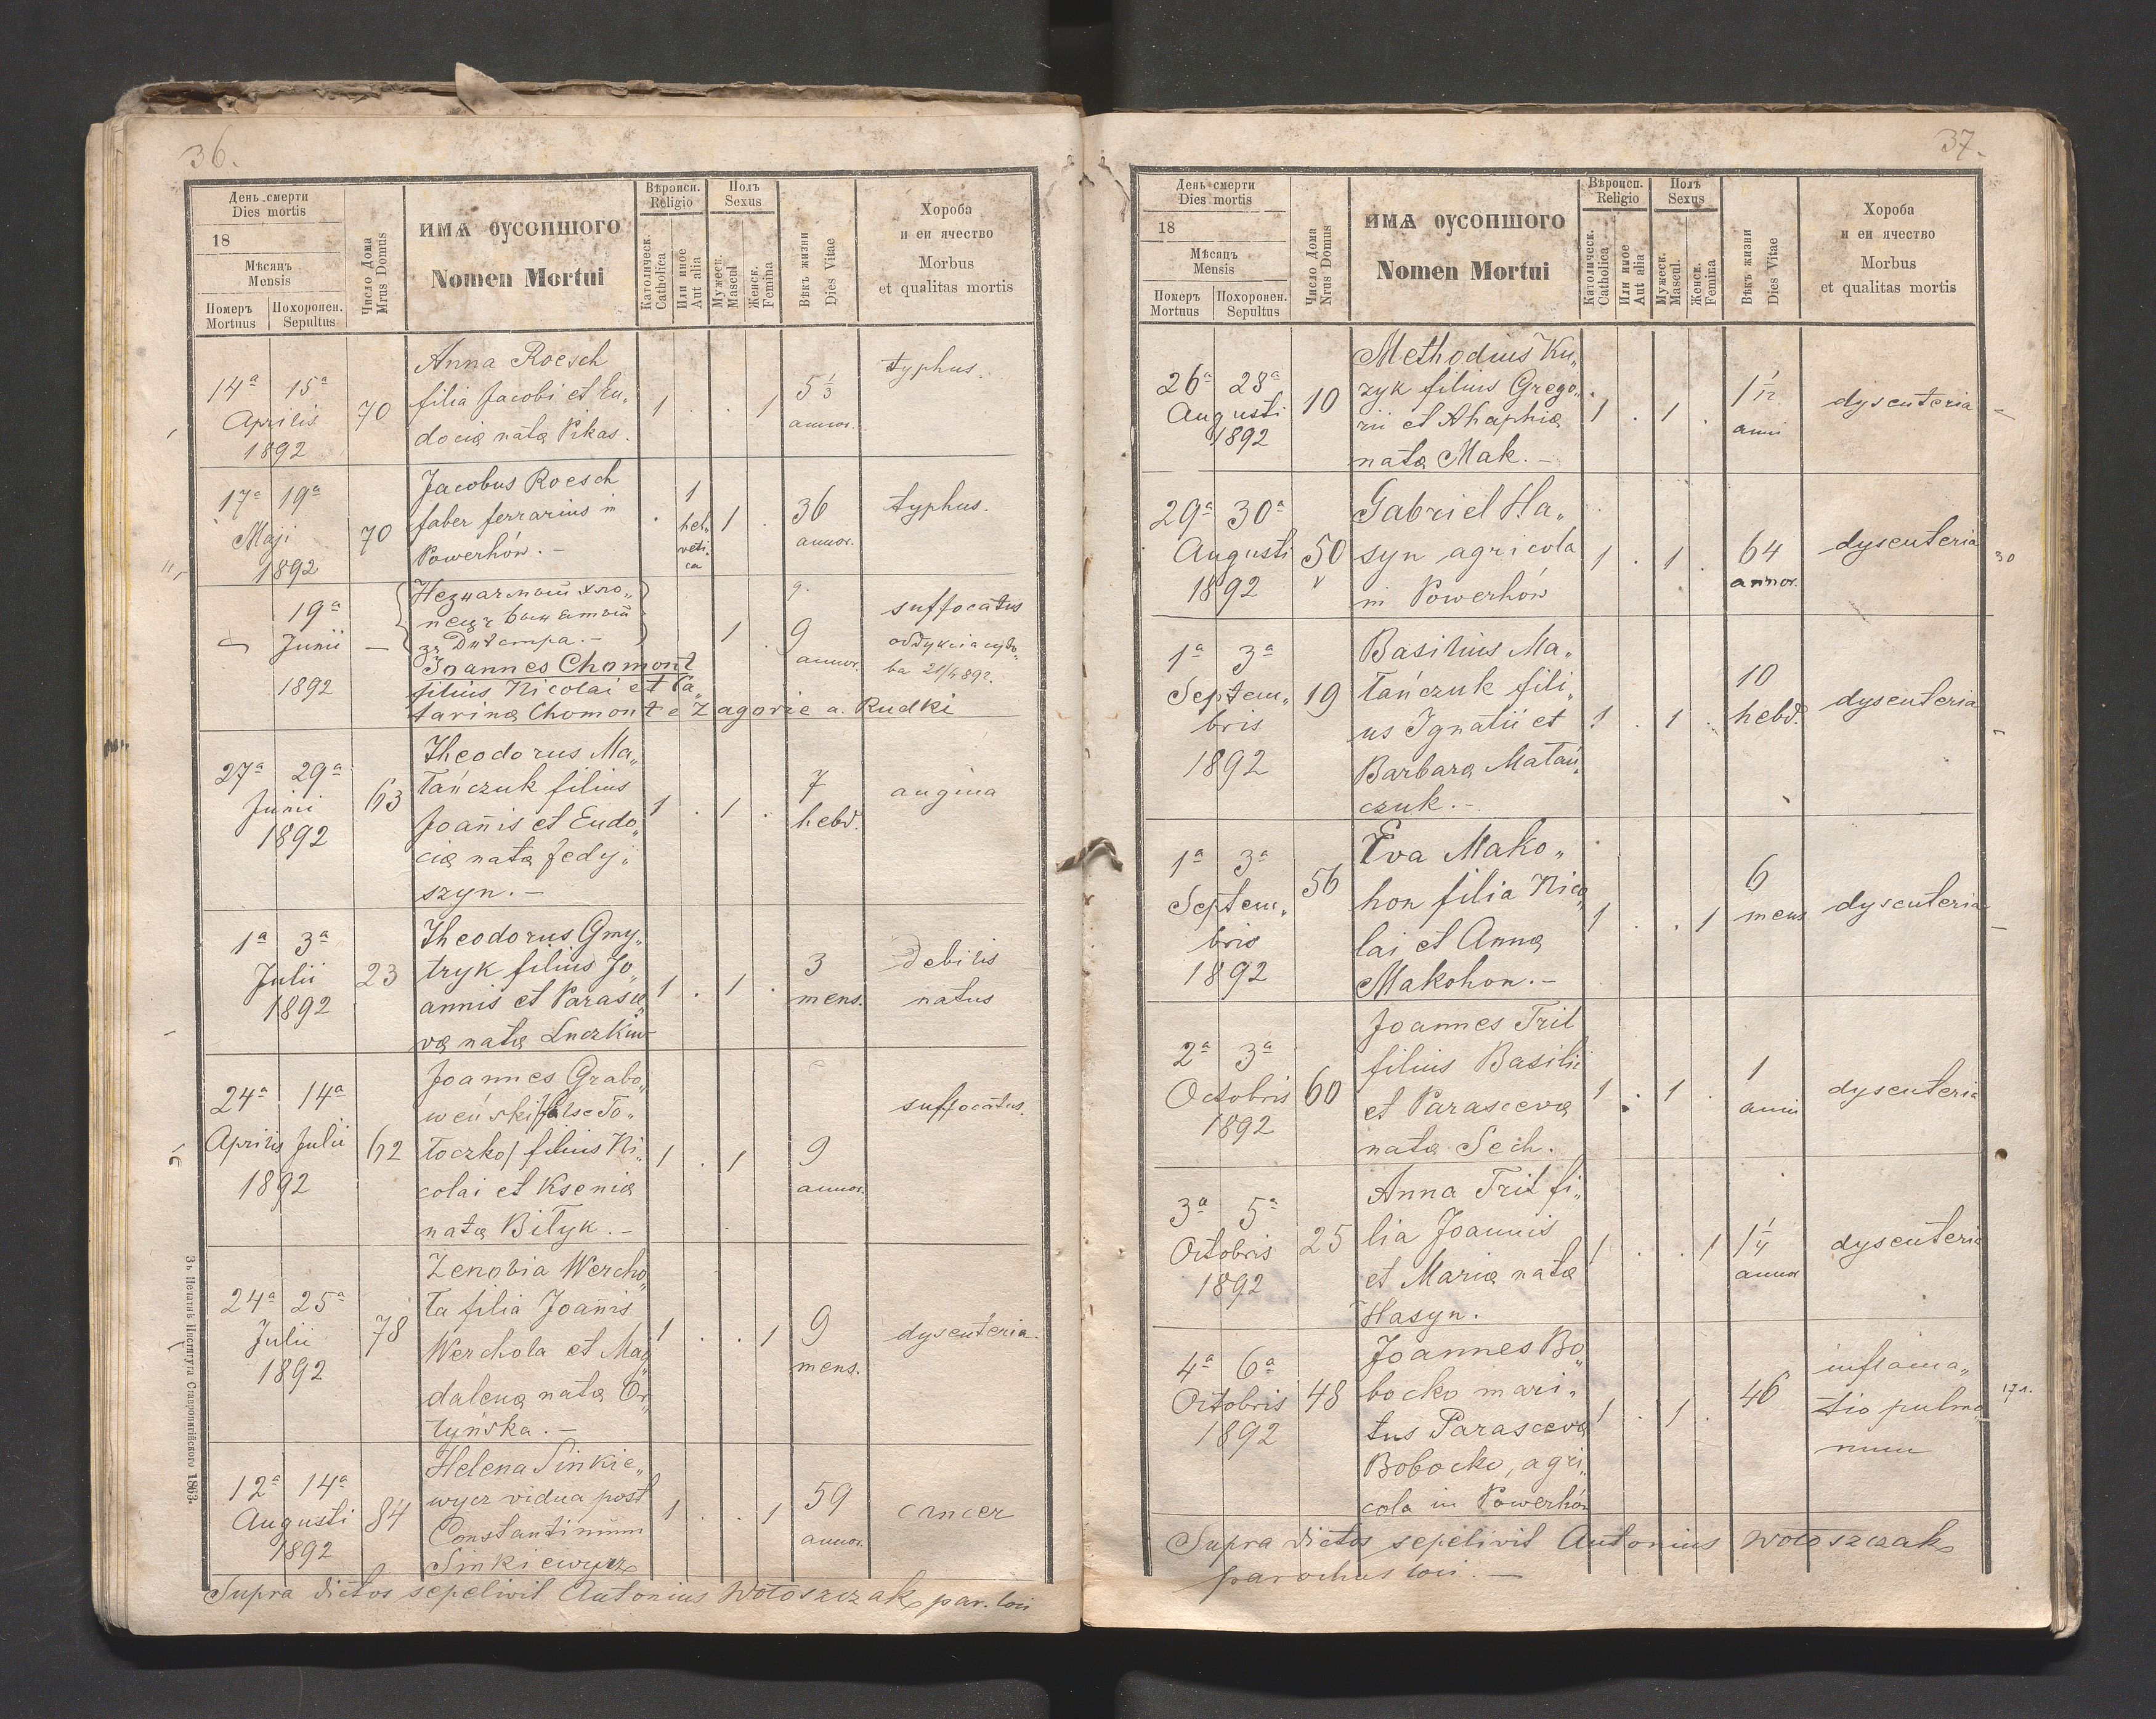 36.
День смерти
Dies mortis
18
Мѣсяцъ
Mensis
Померъ
Mortuus
Похоронен.
Sepultus
Число Дома
Mrus Domus
ИМѦ ОУСОПШОГО
Nomen Mortui
Вѣроисп.
Religio
Католическ.
Catholica
Или иное
Aut alia
Полъ
Sexus
Мужеск.
Mascul.
Женск.
Femina
Вѣкъ жизни
Dies Vitae
Хороба
и еи ячество
Morbus
et qualitas mortis
14ª 15ª
Aprilis
1892
70
Anna Roesch
filia Jacobi et Eu„
docia nata Pikas.
1 . . 1
5 1/3
annor.
typhus.
17ª 19ª
Maji
1892
70
Jacobus Roesch
faber ferrarius in
Powerhów. –
. 1 1 .
hel„
veti„
ca
36
annor.
typhus.
19ª
Junii
1892
—
зъ Днѣстра. –
Joannes Chomont
filius Nicolai et Ca„
tarina Chomont e Zagorie a. Rudki
1 .
9
annor.
suffocatus
27ª 29ª
Junii
1892
63
Theodorus Ma„
łańczuk filius
Joañis et Eudo„
cia nata Fedy„
szyn. –
1 . 1 .
7
hebd.
angina
1ª 3ª
Julii
1892
23
Theodorus Gmy„
tryk filius Jo„
annis et Parasce„
va nata Luczkiw
1 . 1 .
3
mens.
debilis
natus
24ª 14ª
Aprilis Julii
1892
62
Joannes Grabo„
weński /false To„
łoczko/ filius Ni„
colai et Ksenia
nata Biłyk. –
1 . 1
9
annor.
suffocatus.
24ª 25ª
Julii
1892
78
Zenobia Wercho„
ła filia Joañis
Werchola et Mag„
dalena nata Or„
tyńska. –
1 . . 1
9
mens.
dysenteria.
12ª 14ª
Augusti
1892
84
Helena Sinkie„
wycz vidua post
Constantinum
Sinkiewycz
1 . . 1
59
annor.
cancer
Supra dictos sepelivit Antonius Wołoszczak par. loci
Зъ Печатнѣ Института Ставропигійского 1863.
37.
День смерти
Dies mortis
18
Мѣсяцъ
Mensis
Померъ
Mortuus
Похоронен.
Sepultus
Число Дома
Nrus Domus
ИМѦ ОУСОПШОГО
Nomen Mortui
Вѣроисп.
Religio
Католическ.
Catholica
Или иное
Aut alia
Полъ
Sexus
Мужеск.
Mascul.
Женск.
Femina
Вѣкъ жизни
Dies Vitae
Хороба
и еи ячество
Morbus
et qualitas mortis
26ª 28ª
Augusti
1892
10
Methodius Ku„
zyk filius Grego„
rii et Ahaphia
nata Mak. –
1 . 1 .
1 1/12
anni
dysenteria
29ª 30ª
Augusti
1892
50
Gabriel Ha„
syn agricola
in Powerhów
1 . 1 .
64
annor.
dysenteria
30
1ª 3ª
Septem„
bris
1892
19
Basilius Ma„
łańczuk fili„
us Ignatii et
Barbara Małań„
czuk. –
1 . 1 .
10
hebd.
dysenteria
1ª 3ª
Septem„
bris
1892
56
Eva Mako„
hon filia Nico„
lai et Anna
Makohon. –
1 . . 1
6
mens
dysenteria
2ª 3ª
Octobris
1892
60
Joannes Tril
filius Basilii
et Parasceva
nata Sech.
1 . 1 .
1
anni
dysenteria
3ª 5ª
Octobris
1892
25
Anna Tril fi„
lia Joannis
et Maria nata
Hasyn.
1 . . 1
1 1/4
annor
dysenteria
4ª 6ª
Octobris
1892
48
Joannes Bo„
bocko mari„
tus Parasceva
Bobocko, agri„
cola in Powerhów
1 . 1 .
46
inflama„
tio pulmo„
num
171.
Supra dictos sepelivit Antonius Wołoszczak
parochus loci. –